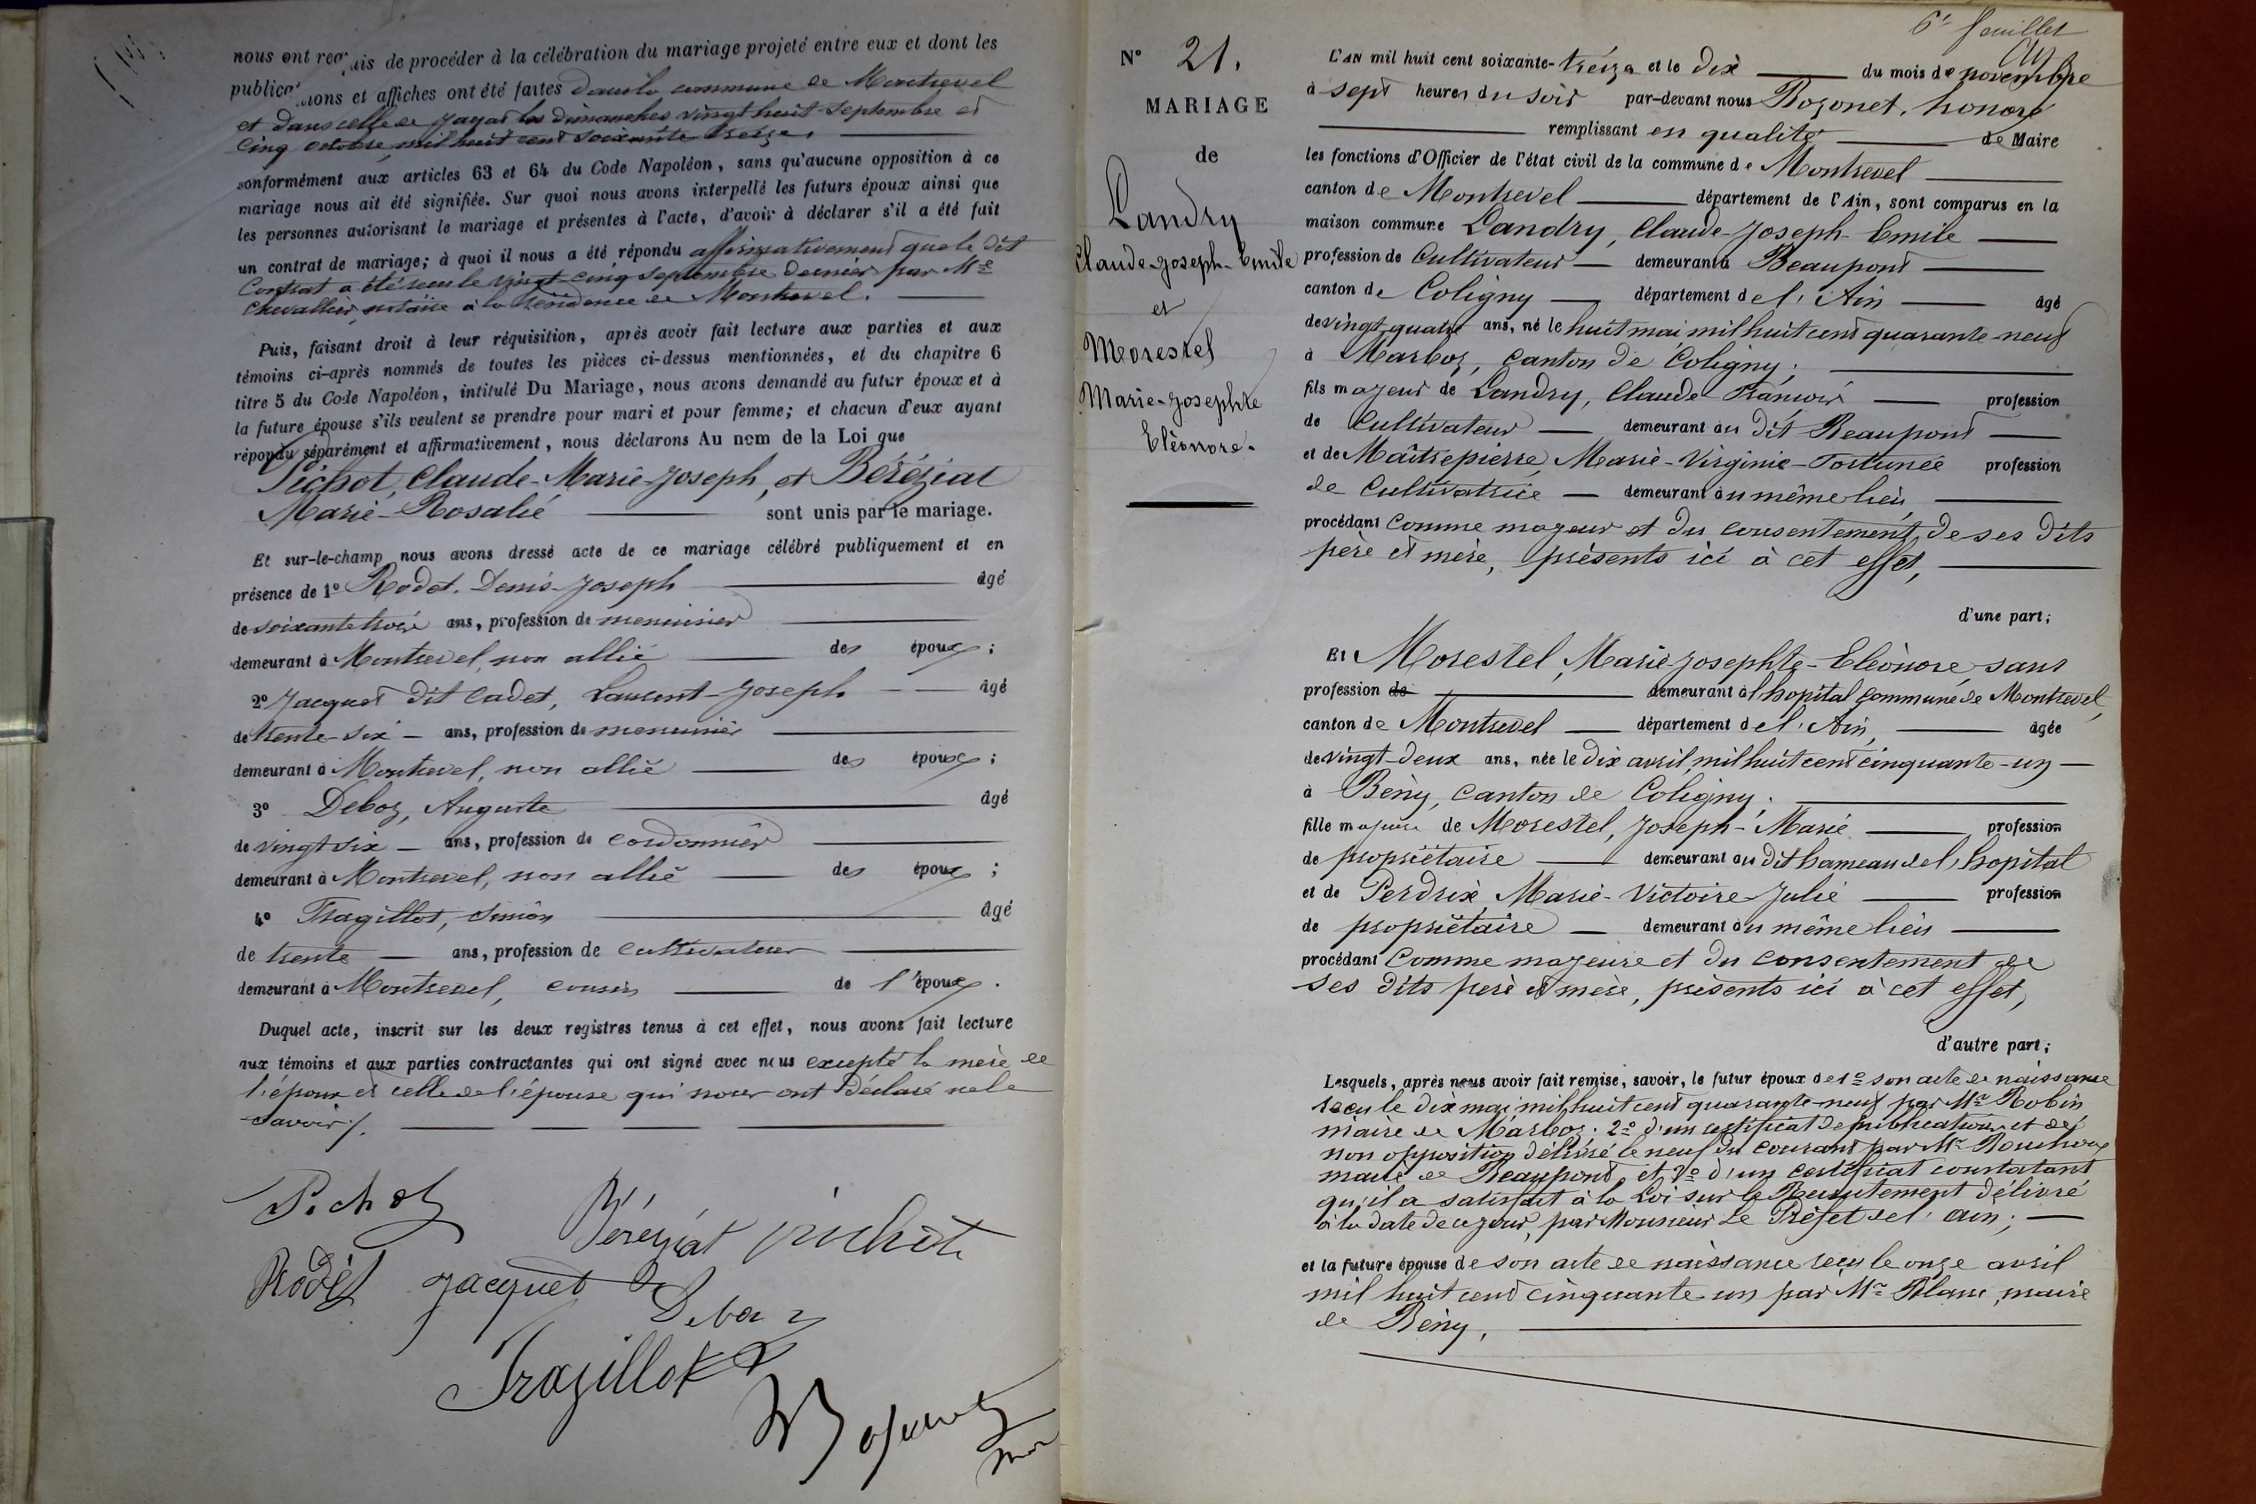 nous ont requis de procéder à la célébration du mariage projeté entre eux et dont les
publications et affiches ont été faites dans la commune de Montrevel
et dans celle de Jayat les dimanches vingt huit Septembre et
Cinq octobre mil huit cent soixante treize.
conformément aux articles 63 et 64 du Code Napoléon, sans qu'aucune opposition à ce
mariage nous ait été signifiée. Sur quoi nous avons interpellé les futurs époux ainsi que
les personnes autorisant le mariage et présentes à l'acte, d'avoir à déclarer s'il a été fait
un contrat de mariage; à quoi il nous a été répondu affirmativement que le dit
Contrat a été reçu le vingt-cinq Septembre dernier par Me
Chevallier, notaire à la résidence de Montrevel.
Puis, faisant droit à leur réquisition, après avoir fait lecture aux parties et aux
témoins ci-après nommés de toutes les pièces ci-dessus mentionnées, et du chapitre 6
titre 5 du Code Napoléon, intitulé Du Mariage, nous avons demandé au futur époux et à
la future épouse s'ils veulent se prendre pour mari et pour femme; et chacun d'eux ayant
répondu séparément et affirmativement, nous déclarons Au nom de la Loi que
Pichot, Claude-Marie-Joseph, et Béréziat
Marie-Rosalie sont unis par le mariage.
Et sur-le-champ nous avons dressé acte de ce mariage célébré publiquement et en
présence de 1° Rodet. Denis-Joseph âgé
de soixante trois ans, profession de menuisier
demeurant à Montrevel, non allié des époux;
2° Jacquet dit Cadet, Laurent-Joseph âgé
de trente-six ans, profession de menuisier
demeurant à Montrevel, non allié des époux;
3° Deboz, Auguste âgé
de vingt six ans, profession de cordonnier
demeurant à Montrevel, non allié des époux;
4° Fragillot, Simon âgé
de trente ans, profession de cultivateur
demeurant à Montrevel, cousin de l'époux.
Duquel acte, inscrit sur les deux registres tenus à cet effet, nous avons fait lecture
aux témoins et aux parties contractantes qui ont signé avec nous excepté la mère de
l'époux et celle de l'épouse qui nous ont déclaré ne le
savoir /.
Pichot Béréziat pichot
Rodet jacquet
Deboz
Fragillot
Bozonet
6e feuillet
N° 21.
MARIAGE
de
Landry
Claude-Joseph-Emile
et
Morestel
Marie-Josephte
Eléonore.
L'AN mil huit cent soixante-treize et le dix du mois de novembre
à sept heures du soir par-devant nous Bozonet, honoré
remplissant en qualité de Maire
les fonctions d'Officier de l'état civil de la commune de Montrevel
canton de Montrevel département de l'Ain, sont comparus en la
maison commune Landry, Claude-Joseph-Emile
profession de Cultivateur demeurant à Beaupont
canton de Coligny département de l'Ain âgé
de vingt quatre ans, né le huit mai mil huit cent quarante-neuf
à Marboz, canton de Coligny;
fils majeur de Landry, Claude-François profession
de Cultivateur demeurant au dit Beaupont
et de Maîtrepierre, Marie-Virginie-Fortunée profession
de Cultivatrice demeurant au même lieu,
procédant Comme majeur et du consentement de ses dits
père et mère, présents ici à cet effet,
d'une part;
Et Morestel, Marie-Josephte-Eléonore, sans
profession de demeurant à l'hopital commune de Montrevel,
canton de Montrevel département de l'Ain, âgée
de vingt-deux ans, née le dix avril mil huit cent cinquante-un
à Bény, canton de Coligny;
fille majeure de Morestel, Joseph-Marie profession
de propriétaire demeurant au dit hameau de l'hopital
et de Perdrix, Marie-Victoire-Julie profession
de propriétaire demeurant au même lieu
procédant Comme majeure et du consentement de
ses dits père et mère, présents ici à cet effet,
d'autre part;
Lesquels, après nous avoir fait remise, savoir, le futur époux de 1° son acte de naissance
reçu le dix mai mil huit cent quarante-neuf par Mr Robin
maire de Marboz. 2° d'un certificat de publication et de
non opposition délivré le neuf du courant par Mr
maire de Beaupont et 3° d'un certificat constatant
qu'il a satisfait à la Loi sur le Recrutement délivré
à la date de ce jour, par Monsieur Le Préfet de l'ain;
et la future épouse de son acte de naissance reçu le onze avril
mil huit cent cinquante un par Mr Blanc, maire
de Bény,